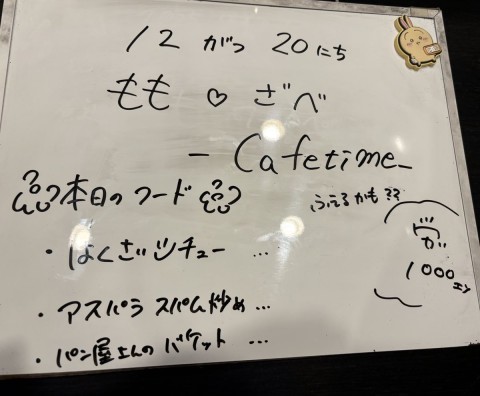 12 がつ 20 にち
もも ♡ ざべ
- Cafetime -
本日の フード
ふえるかも??
・はくさいシチュー …
・アスパラ スパム炒め …
・パン屋さんの バケット …
1000エン